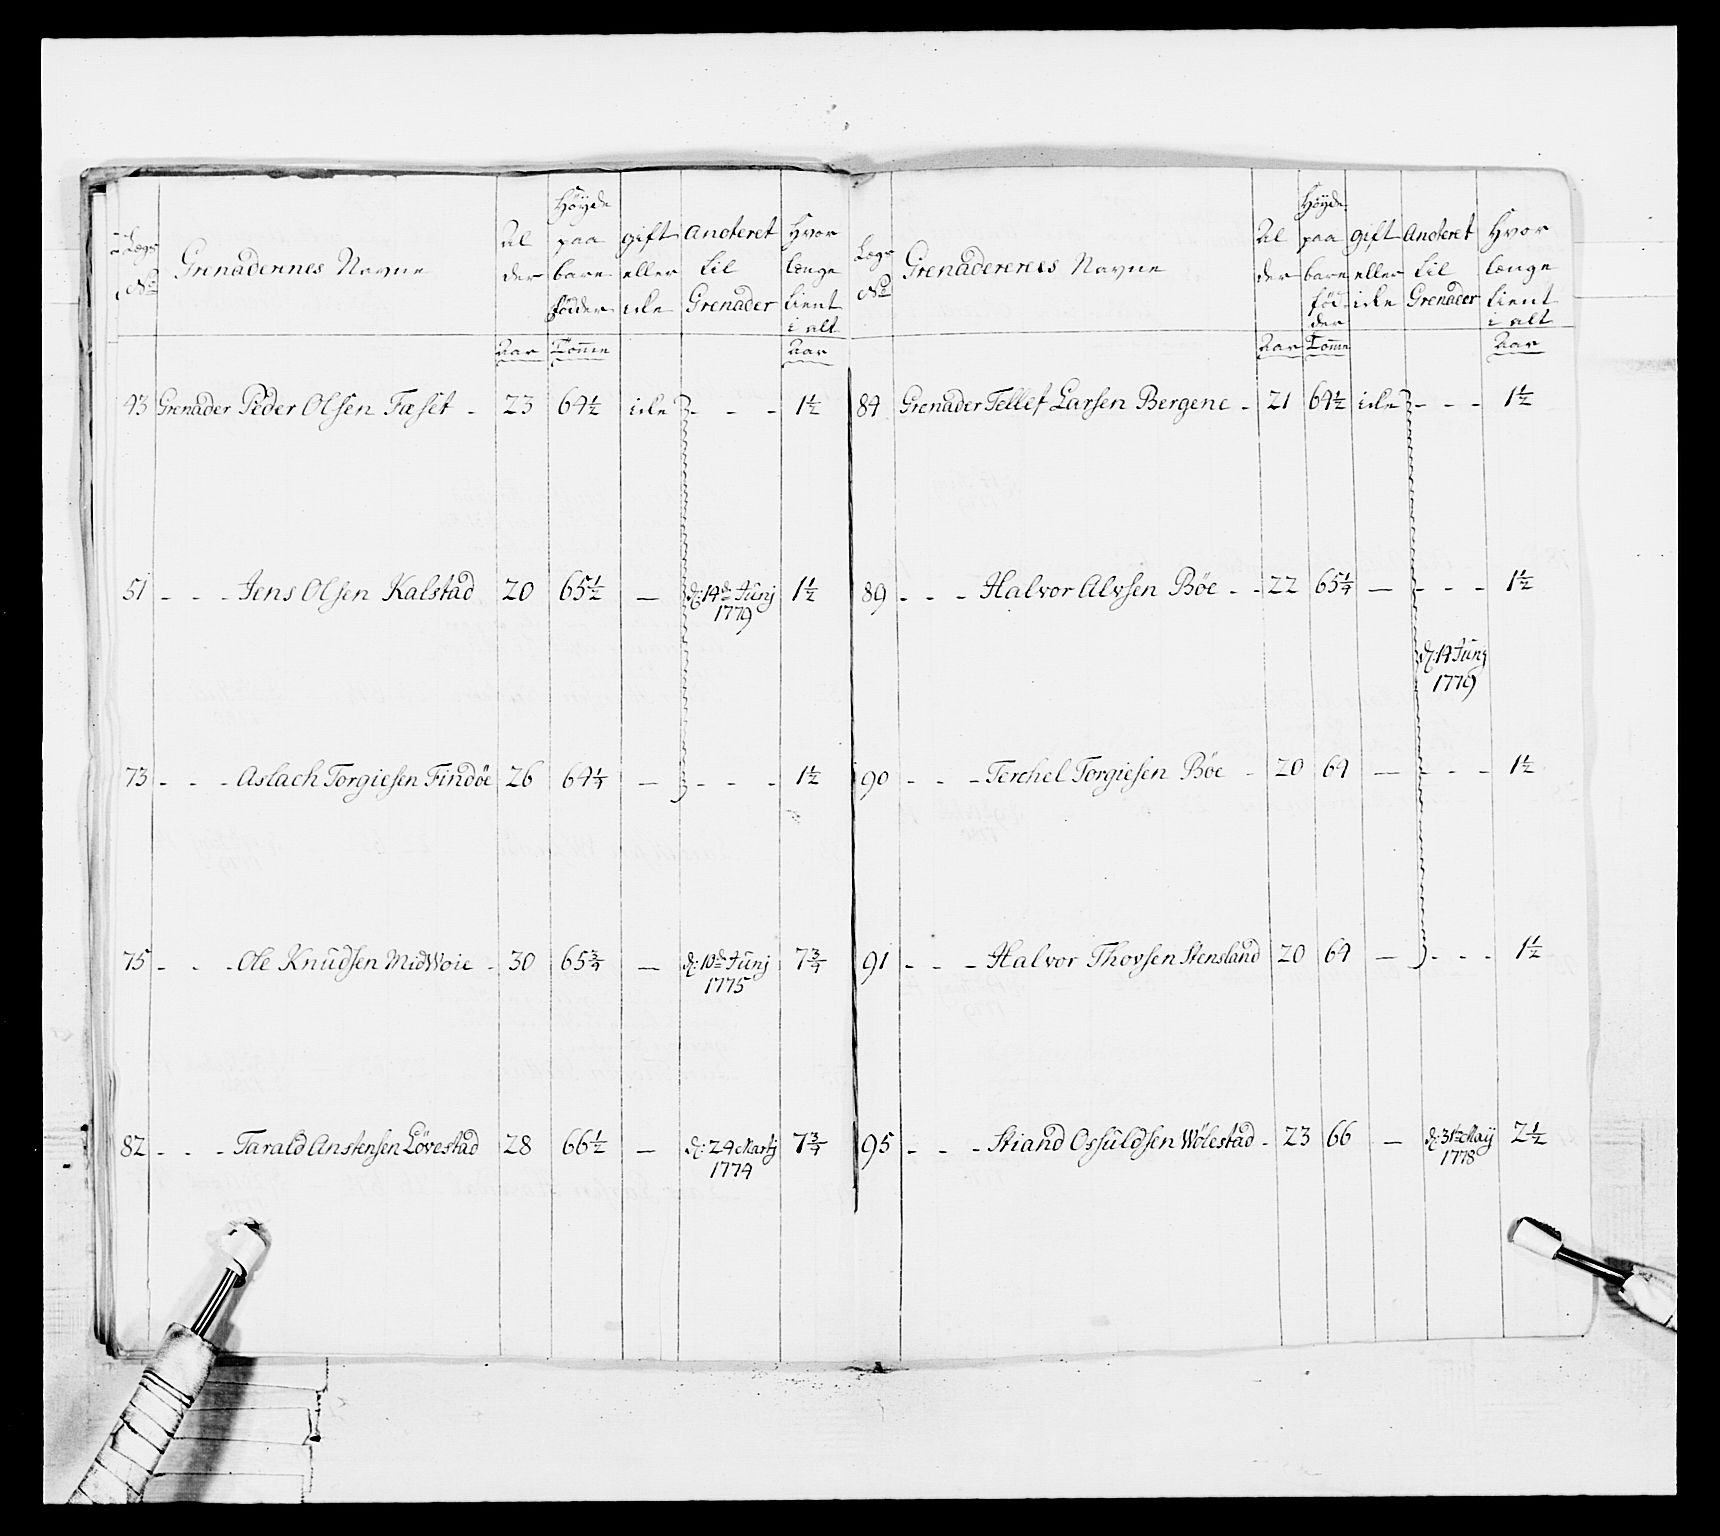 Lægs No | Grenadernes Navne | Al der | Høyde paa bare fødder | gift eller icke | Anoteret til Grenader | Hvor længe tient i alt
Aar | Tomm | Aar
43 Grenader Peder Olsen Fæset - 23 64½ icke - - - 1½
51 - - - Jens Olsen Kalstad 20 65½ — d: 14de Junj 1779 1½
73 - - - Aslach Torgiesen Findöe 26 64¼ — - - - 1½
75 - - - Ole Knudsen Midwoie - 30 65¾ — d: 10de Junj 1775 7¾
82 - - - Tarald Anstensen Lövestad 28 66½ — d: 24 Martj 1774 7¾
Lægs No | Grenaderernes Navne | Al der | Høyde paa bare fød der | gift eller icke | Anoteret til Grenader | Hvor længe tient i alt
Aar | Tomm | Aar
84 Grenader Tellef Larsen Bergene - 21 64½ icke - - - 1½
89 - - - Halvor Alvsen Böe - - 22 65¼ — - - - 1½
d: 14 Junj 1779
90 - - - Terchel Torgiesen Böe - 20 64 — - - - 1½
91 - - - Halvor Thovsen Stensland 20 64 — - - - 1½
95 - - - Stiand Ossuldsen Wölestad - 23 66 — d: 31te Maij 1778 2½